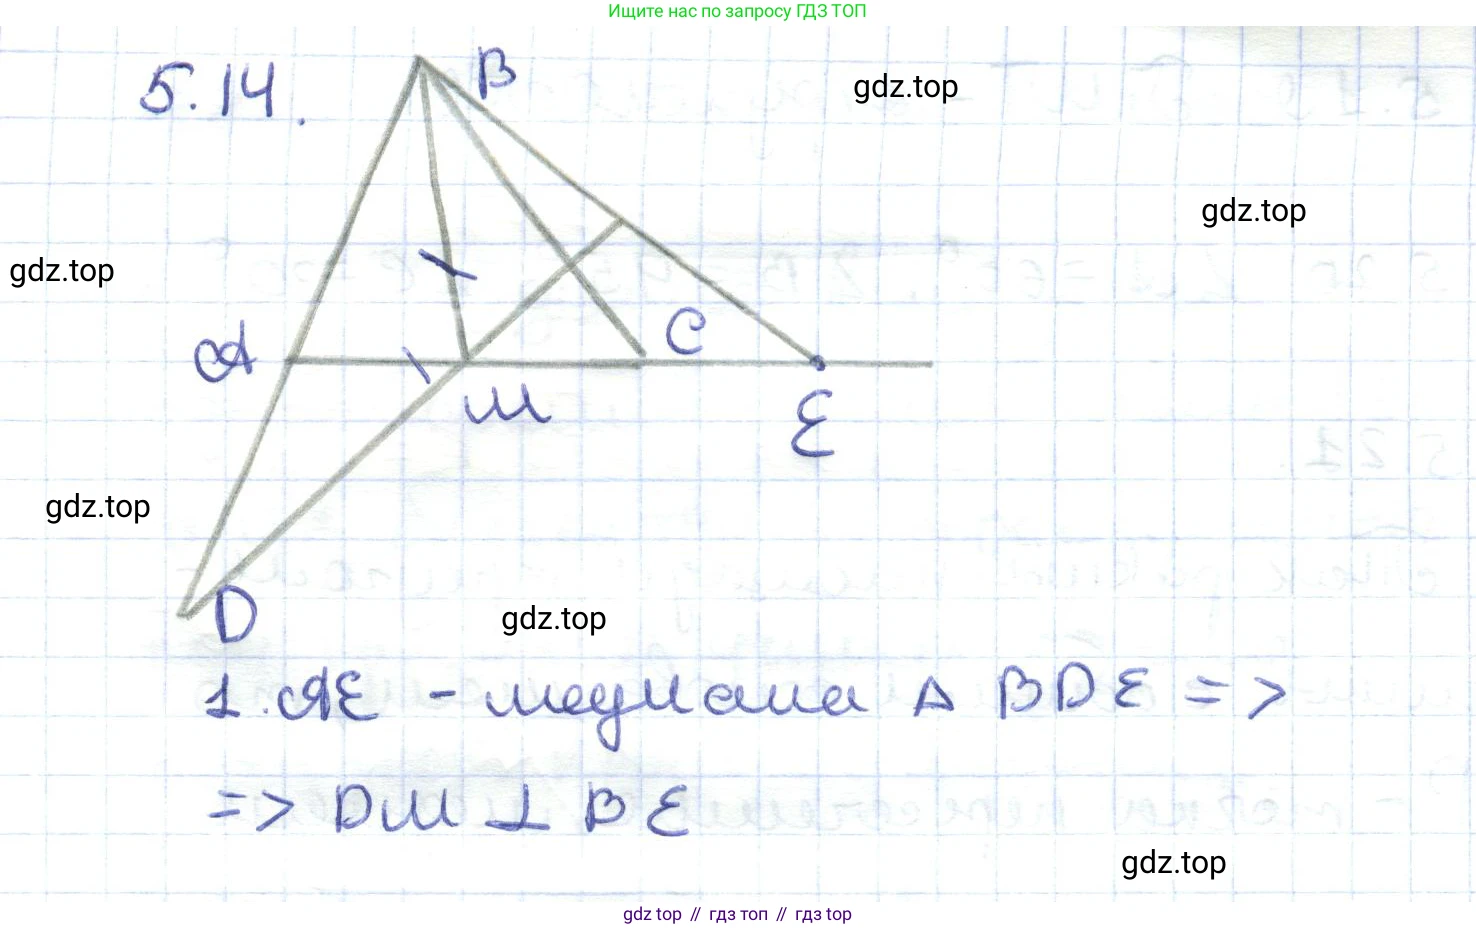 Ищите нас по запросу ГДЗ ТОП
5.14.
B
gdz.top
gdz.top
gdz.top
A
C
M
E
gdz.top
D
gdz.top
1. AE - медиана Δ BDE =>
=> DM ⊥ BE
gdz.top
gdz top // гдз топ // гдз top